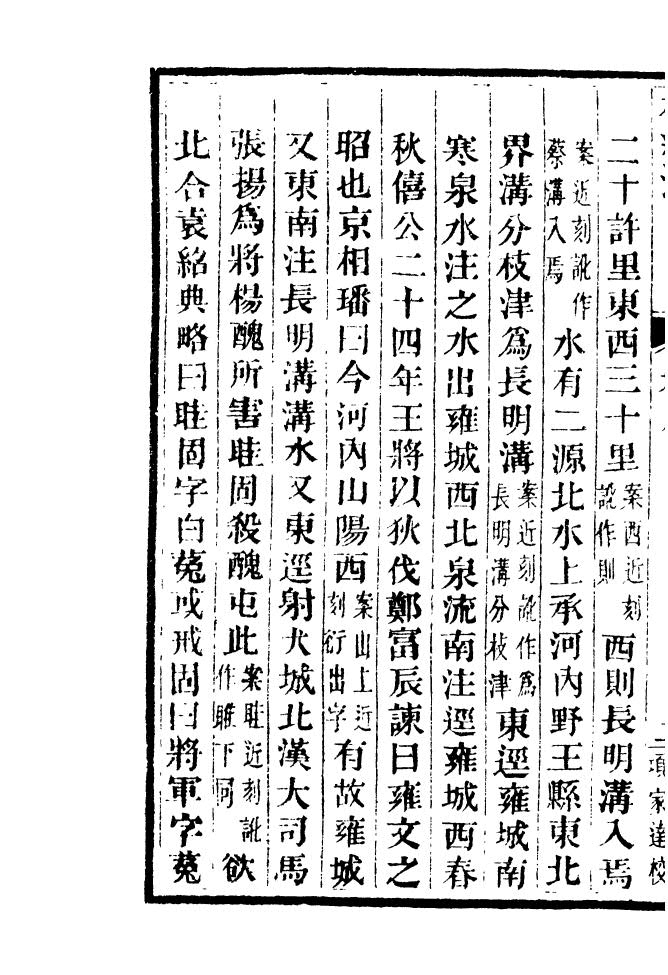 二十許里東西三十里案西近刻訛作則西則長明溝入焉
案近刻訛作蔡溝入焉水有二源北水上承河內野王縣東北
界溝分枝津爲長明溝案近刻訛作爲長明溝分枝津東逕雍城南
寒泉水注之水出雍城西北泉流南注逕雍城西春
秋僖公二十四年王將以狄伐鄭富辰諫曰雍文之
昭也京相璠曰今河內山陽西案山上近刻衍出字有故雍城
又東南注長明溝溝水又東逕射犬城北漢大司馬
張揚爲將楊醜所害眭固殺醜屯此案眭近刻訛作睢下同欲
北合袁紹典略曰眭固字白菟或戒固曰將軍字菟